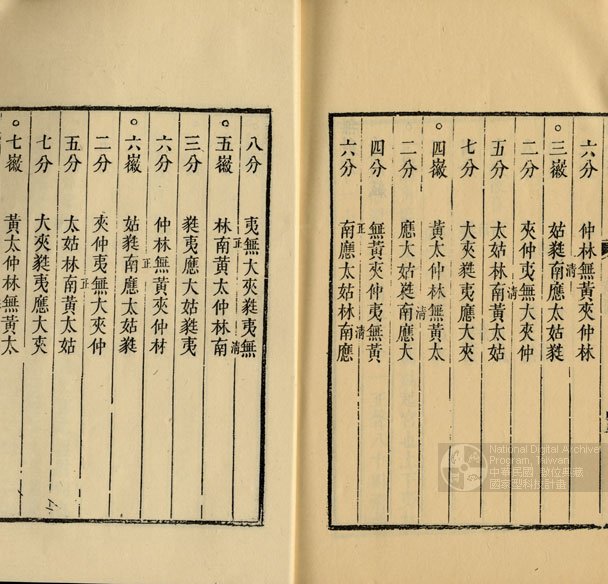 六分 仲林無黃夾仲林
清
○三徽 姑蕤南應太姑蕤
二分 夾仲夷無大夾仲
清
五分 太姑林南黃太姑
七分 大夾蕤夷應大夾
○四徽 黃太仲林無黃太
清
二分 應大姑蕤南應大
四分 無黃夾仲夷無黃
正 清
六分 南應太姑林南應
八分 夷無大夾蕤夷無
正 清
○五徽 林南黃太仲林南
三分 蕤夷應大姑蕤夷
六分 仲林無黃夾仲材
正
○六徽 姑蕤南應太姑蕤
二分 夾仲夷無大夾仲
正
五分 太姑林南黃太姑
七分 大夾蕤夷應大夾
○七徽 黃太仲林無黃太
National Digital Archive
Program, Taiwan
中華民國 數位典藏
國家型科技計畫